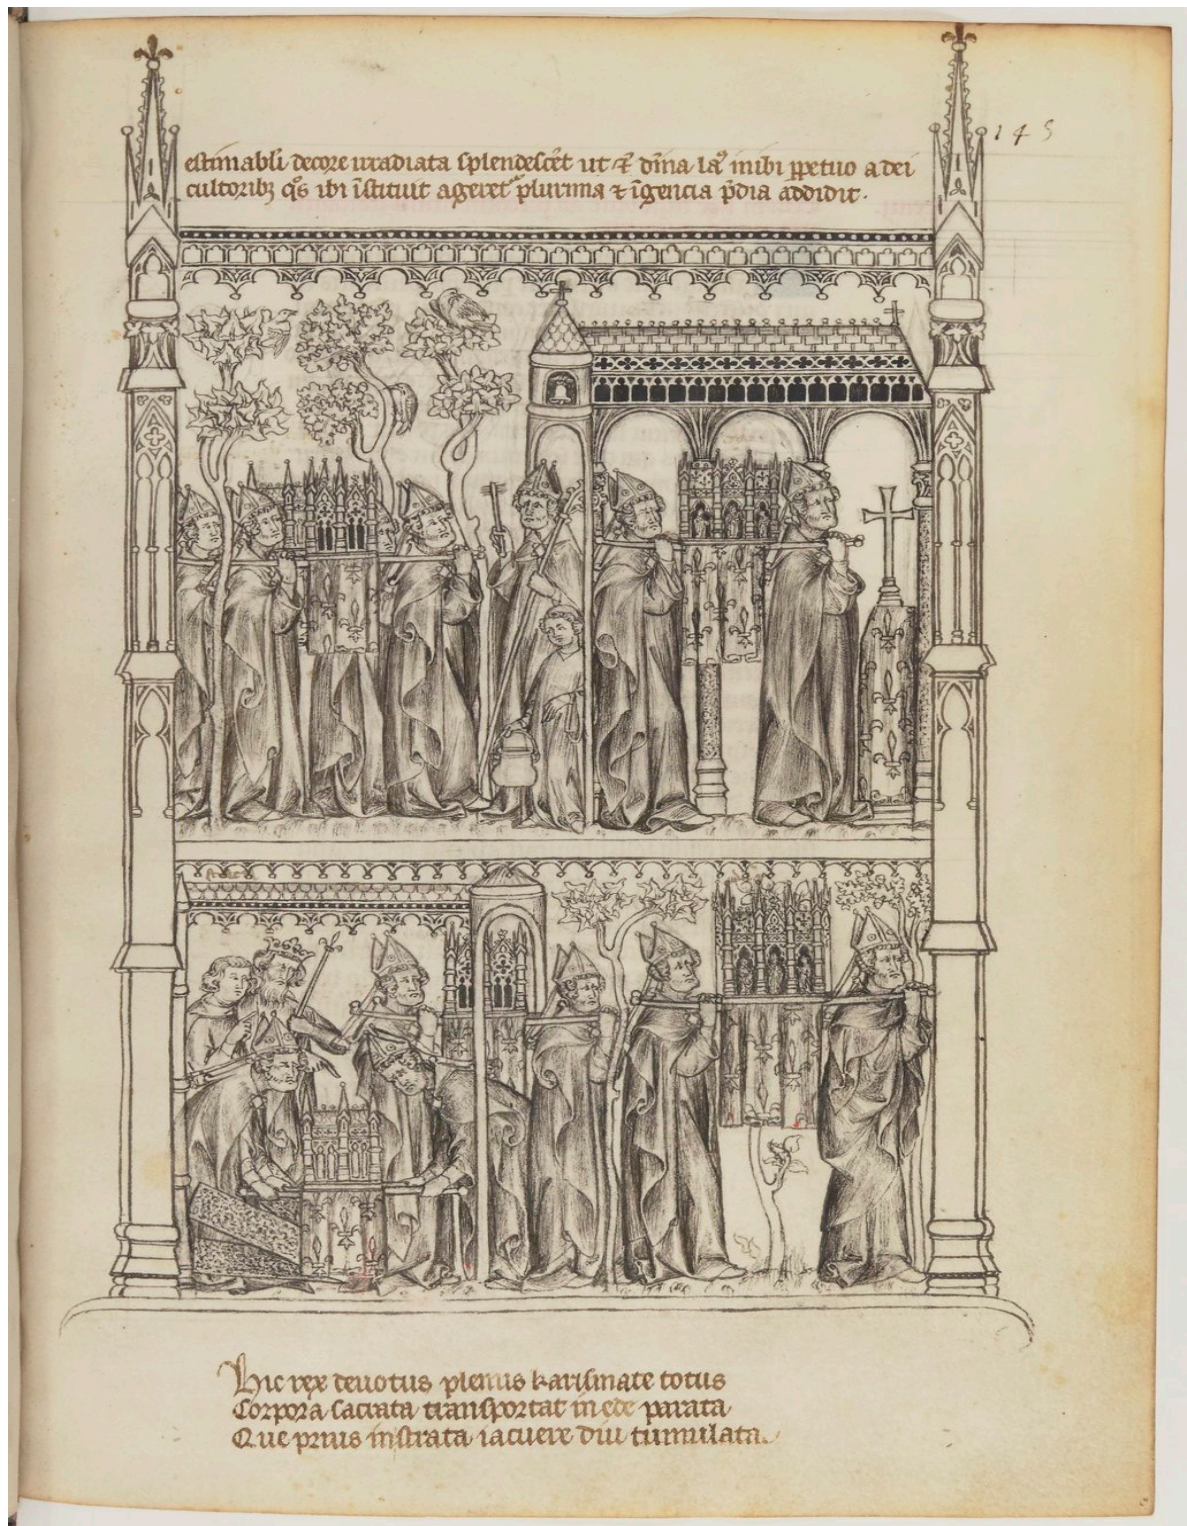 145
estimabli decore irradiata splendescēt ut ⁊ dīna laꝰ inibi ꝑpetuo a dei
cultoribꝫ qͦs ibi īstituit ageretͬ plurima ⁊ īgencia p̄dia addidit.
Hic rex deuotus plenus karismate totus
Corpora sacrata transportat in ede parata
Que prius instrata iacuere diu tumulata.